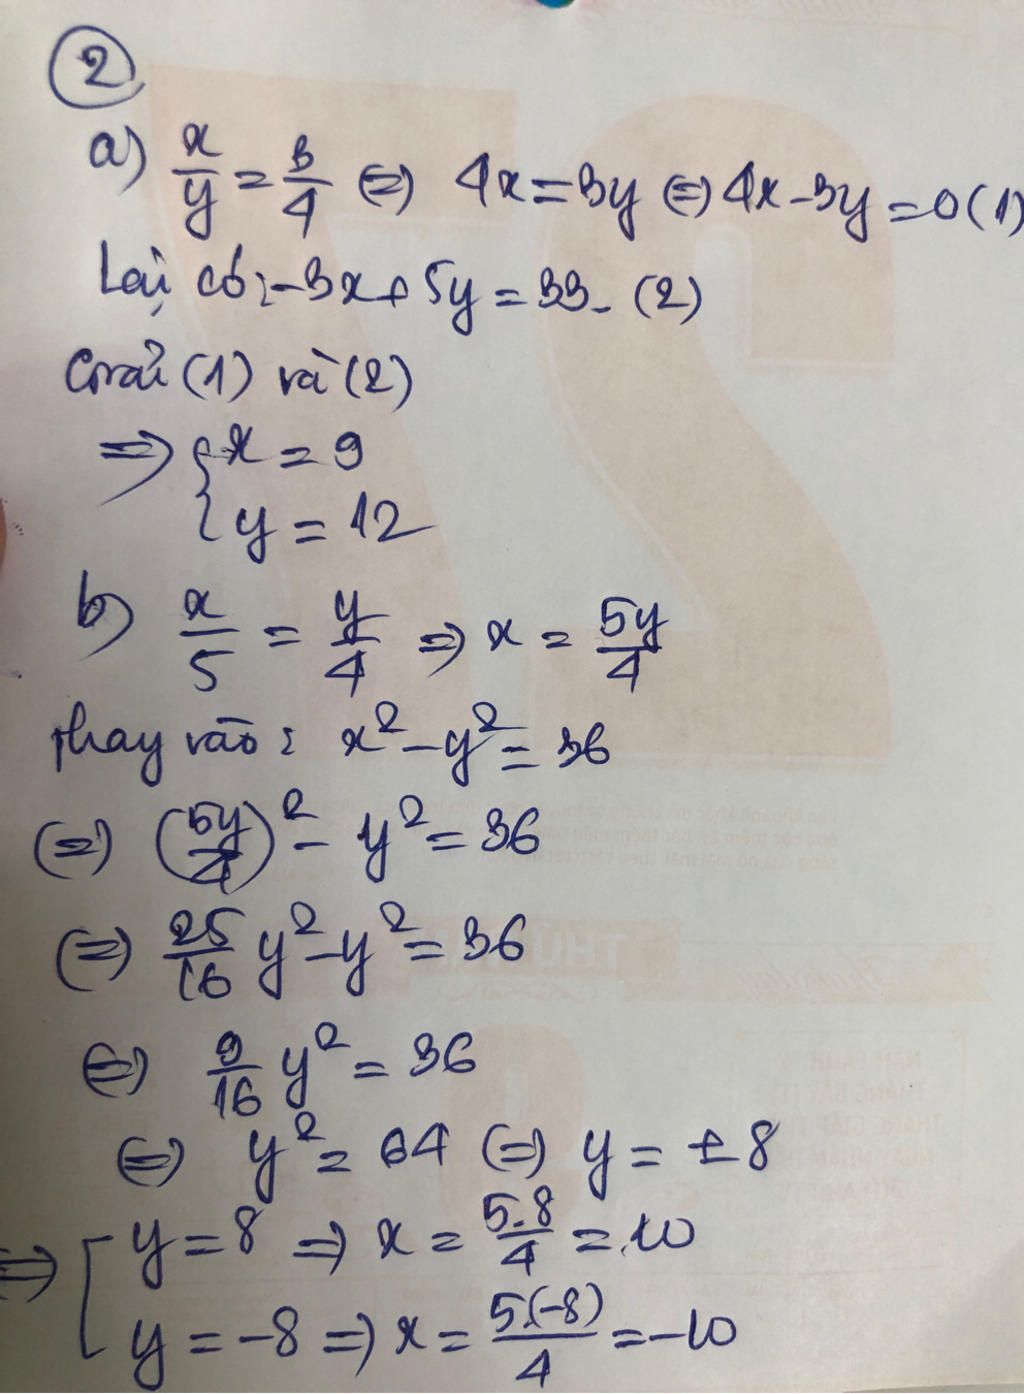 2
a) x/y = 3/4 ⇔ 4x = 3y ⇔ 4x - 3y = 0 (1)
Lại có: -3x + 5y = 33. (2)
(1) và (2)
⇒ { x = 9
y = 12
b) x/5 = y/4 ⇒ x = 5y/4
thay vào: x² - y² = 36
⇔ (5y/4)² - y² = 36
⇔ 25/16 y² - y² = 36
⇔ 9/16 y² = 36
⇔ y² = 64 ⇔ y = ±8
⇒ [ y = 8 ⇒ x = 5.8/4 = 10
y = -8 ⇒ x = 5.(-8)/4 = -10